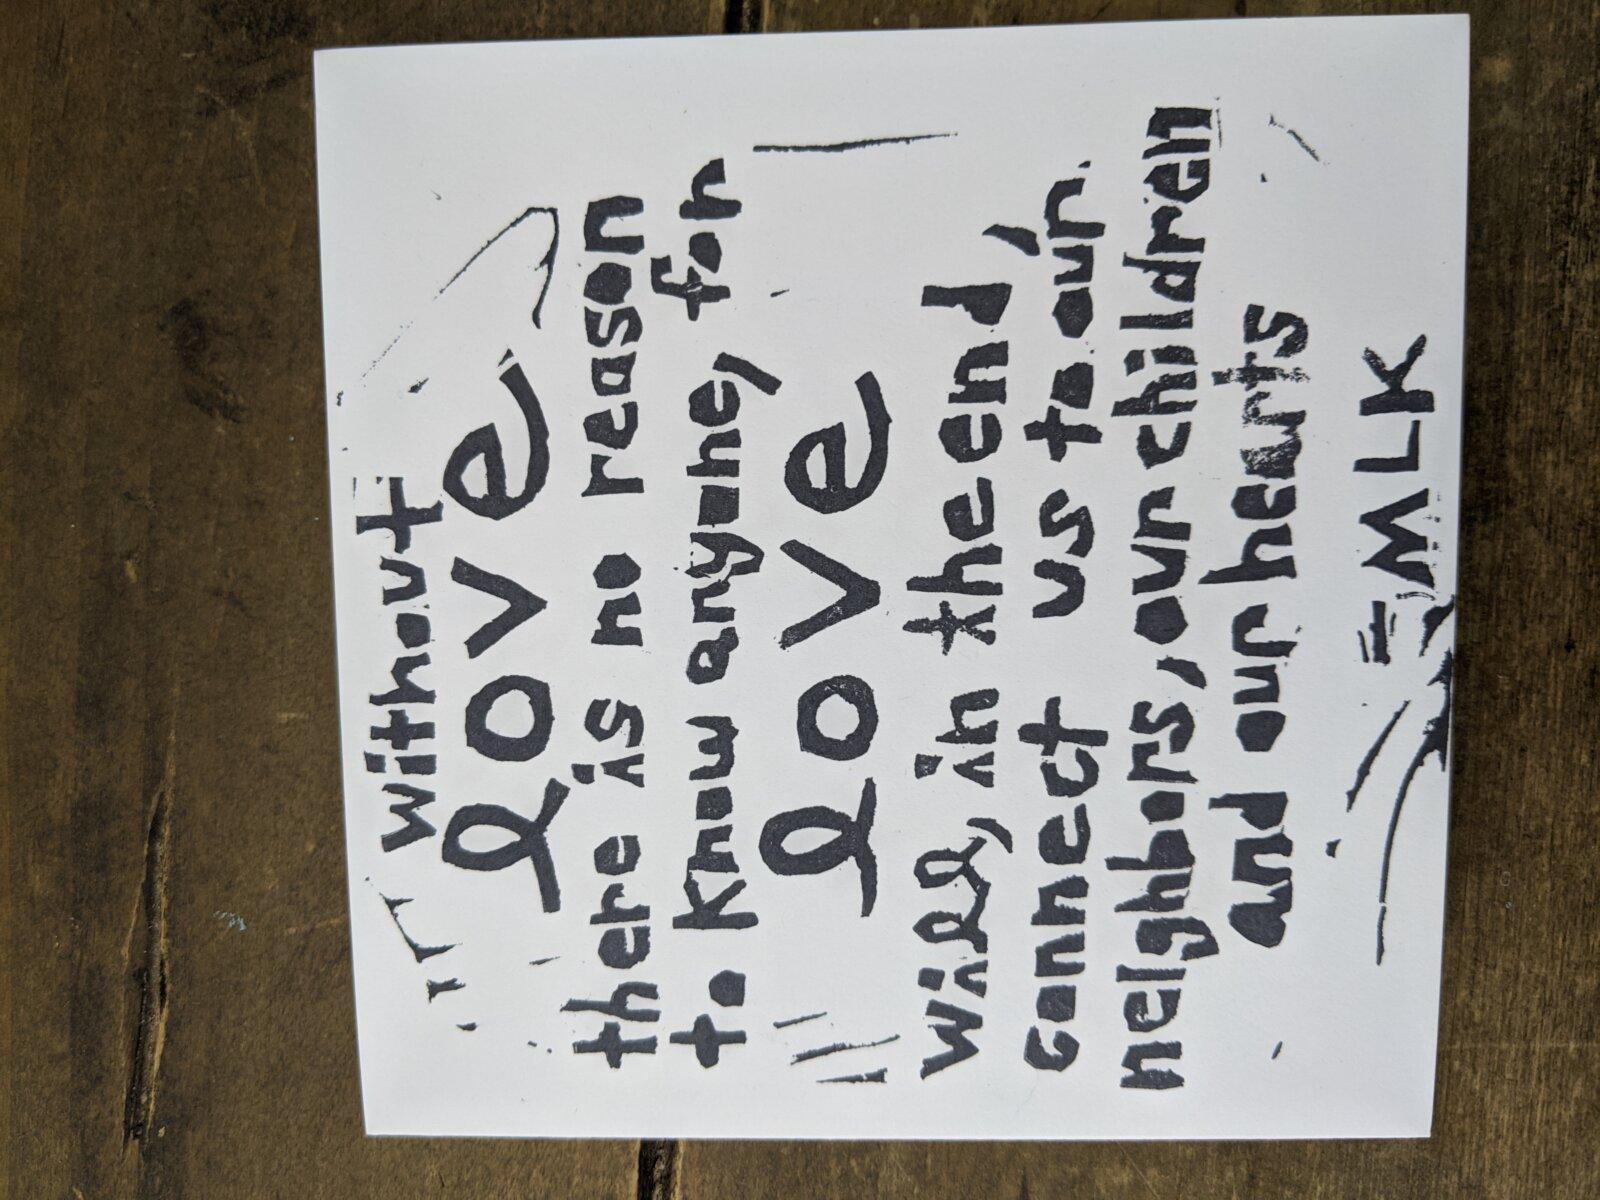 without
love
there is no reason
to know anyone, for
love
will, in the end,
connect us to our
neighbors, our children
and our hearts
=MLK